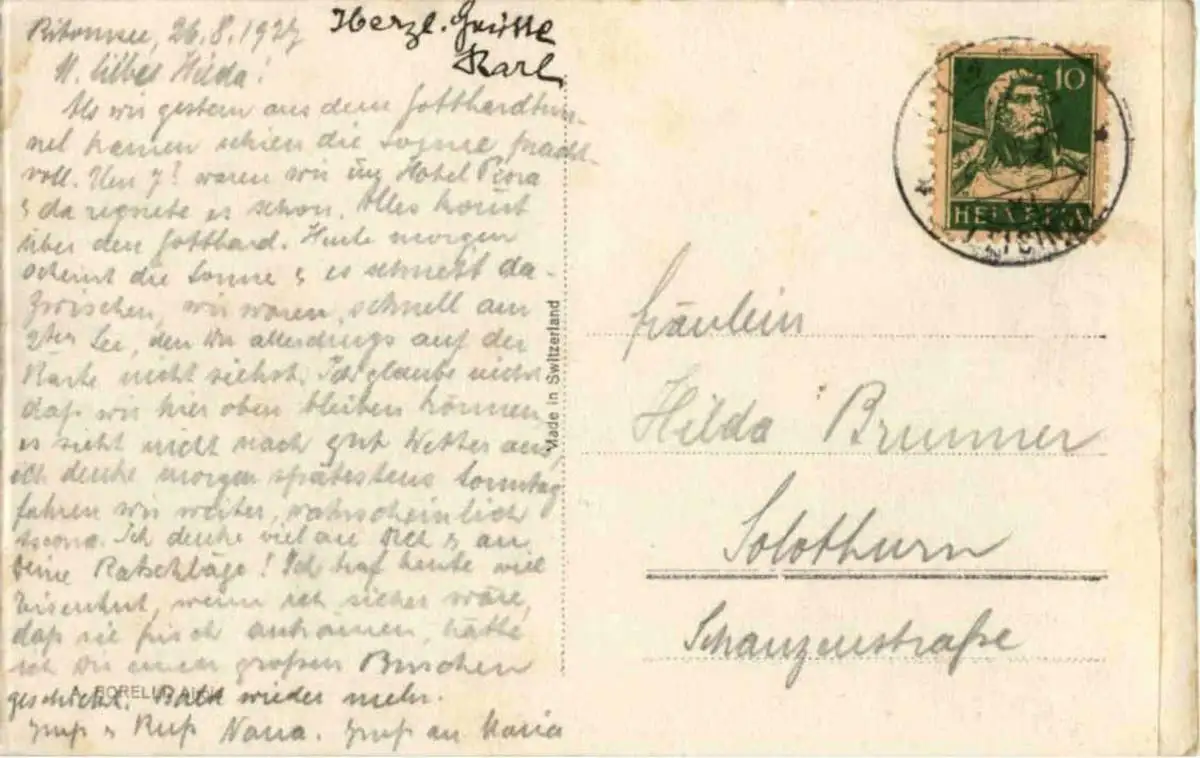 Ritomsee, 26.8.1927
Herzl. Grüsse
Karl
M. liebes Hilda!
Als wir gestern aus dem Gotthardtun-
nel kamen schien die Sonne pracht-
voll. Um 7! waren wir im Hotel Piora
& da regnete es schon. Alles kommt
über den Gotthard. Heute morgen
scheint die Sonne & es schneit da-
zwischen, wir waren schnell am
2ten See, den Du allerdings auf der
Karte nicht siehst. Ich glaube nicht
daß wir hier oben bleiben können
es sieht nicht nach gut Wetter aus,
ich denke morgen spätestens Sonntag
fahren wir weiter, wahrscheinlich
Ascona. Ich denke viel an Dich & an
Deine Ratschläge! Ich traf heute viel
Eisenhut, wenn ich sicher wäre,
daß sie frisch ankämen, hätte
ich Dir einen großen Buschen
geschickt. Bald wieder mehr.
Gruß & Kuß Nana. Gruß an Maria
Made in Switzerland
10
HELVETIA
Fräulein
Hilda Brunner
Solothurn
Schanzenstraße